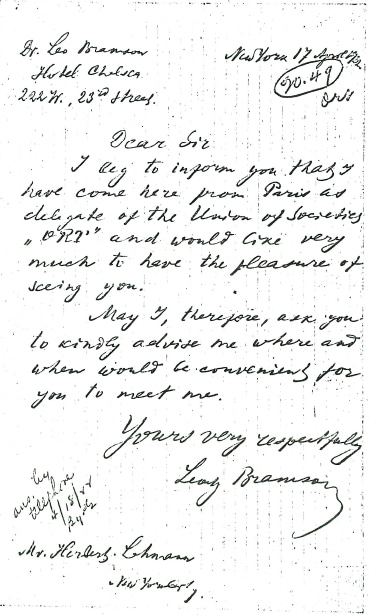 Dr. Leo Bramson
Hotel Chelsea
222 W., 23rd Street.
New York 17 April
Dear Sir
I beg to inform you that I
have come here from Paris as
delegate of the Union of Societies
„ORT” and would like very
much to have the pleasure of
seeing you.
May I, therefore, ask you
to kindly advise me where and
when would be convenient for
you to meet me.
Yours very respectfully
Bramson
ans. by
telephone
4/18/22
Mr. Herbert Lehmann
New York City.